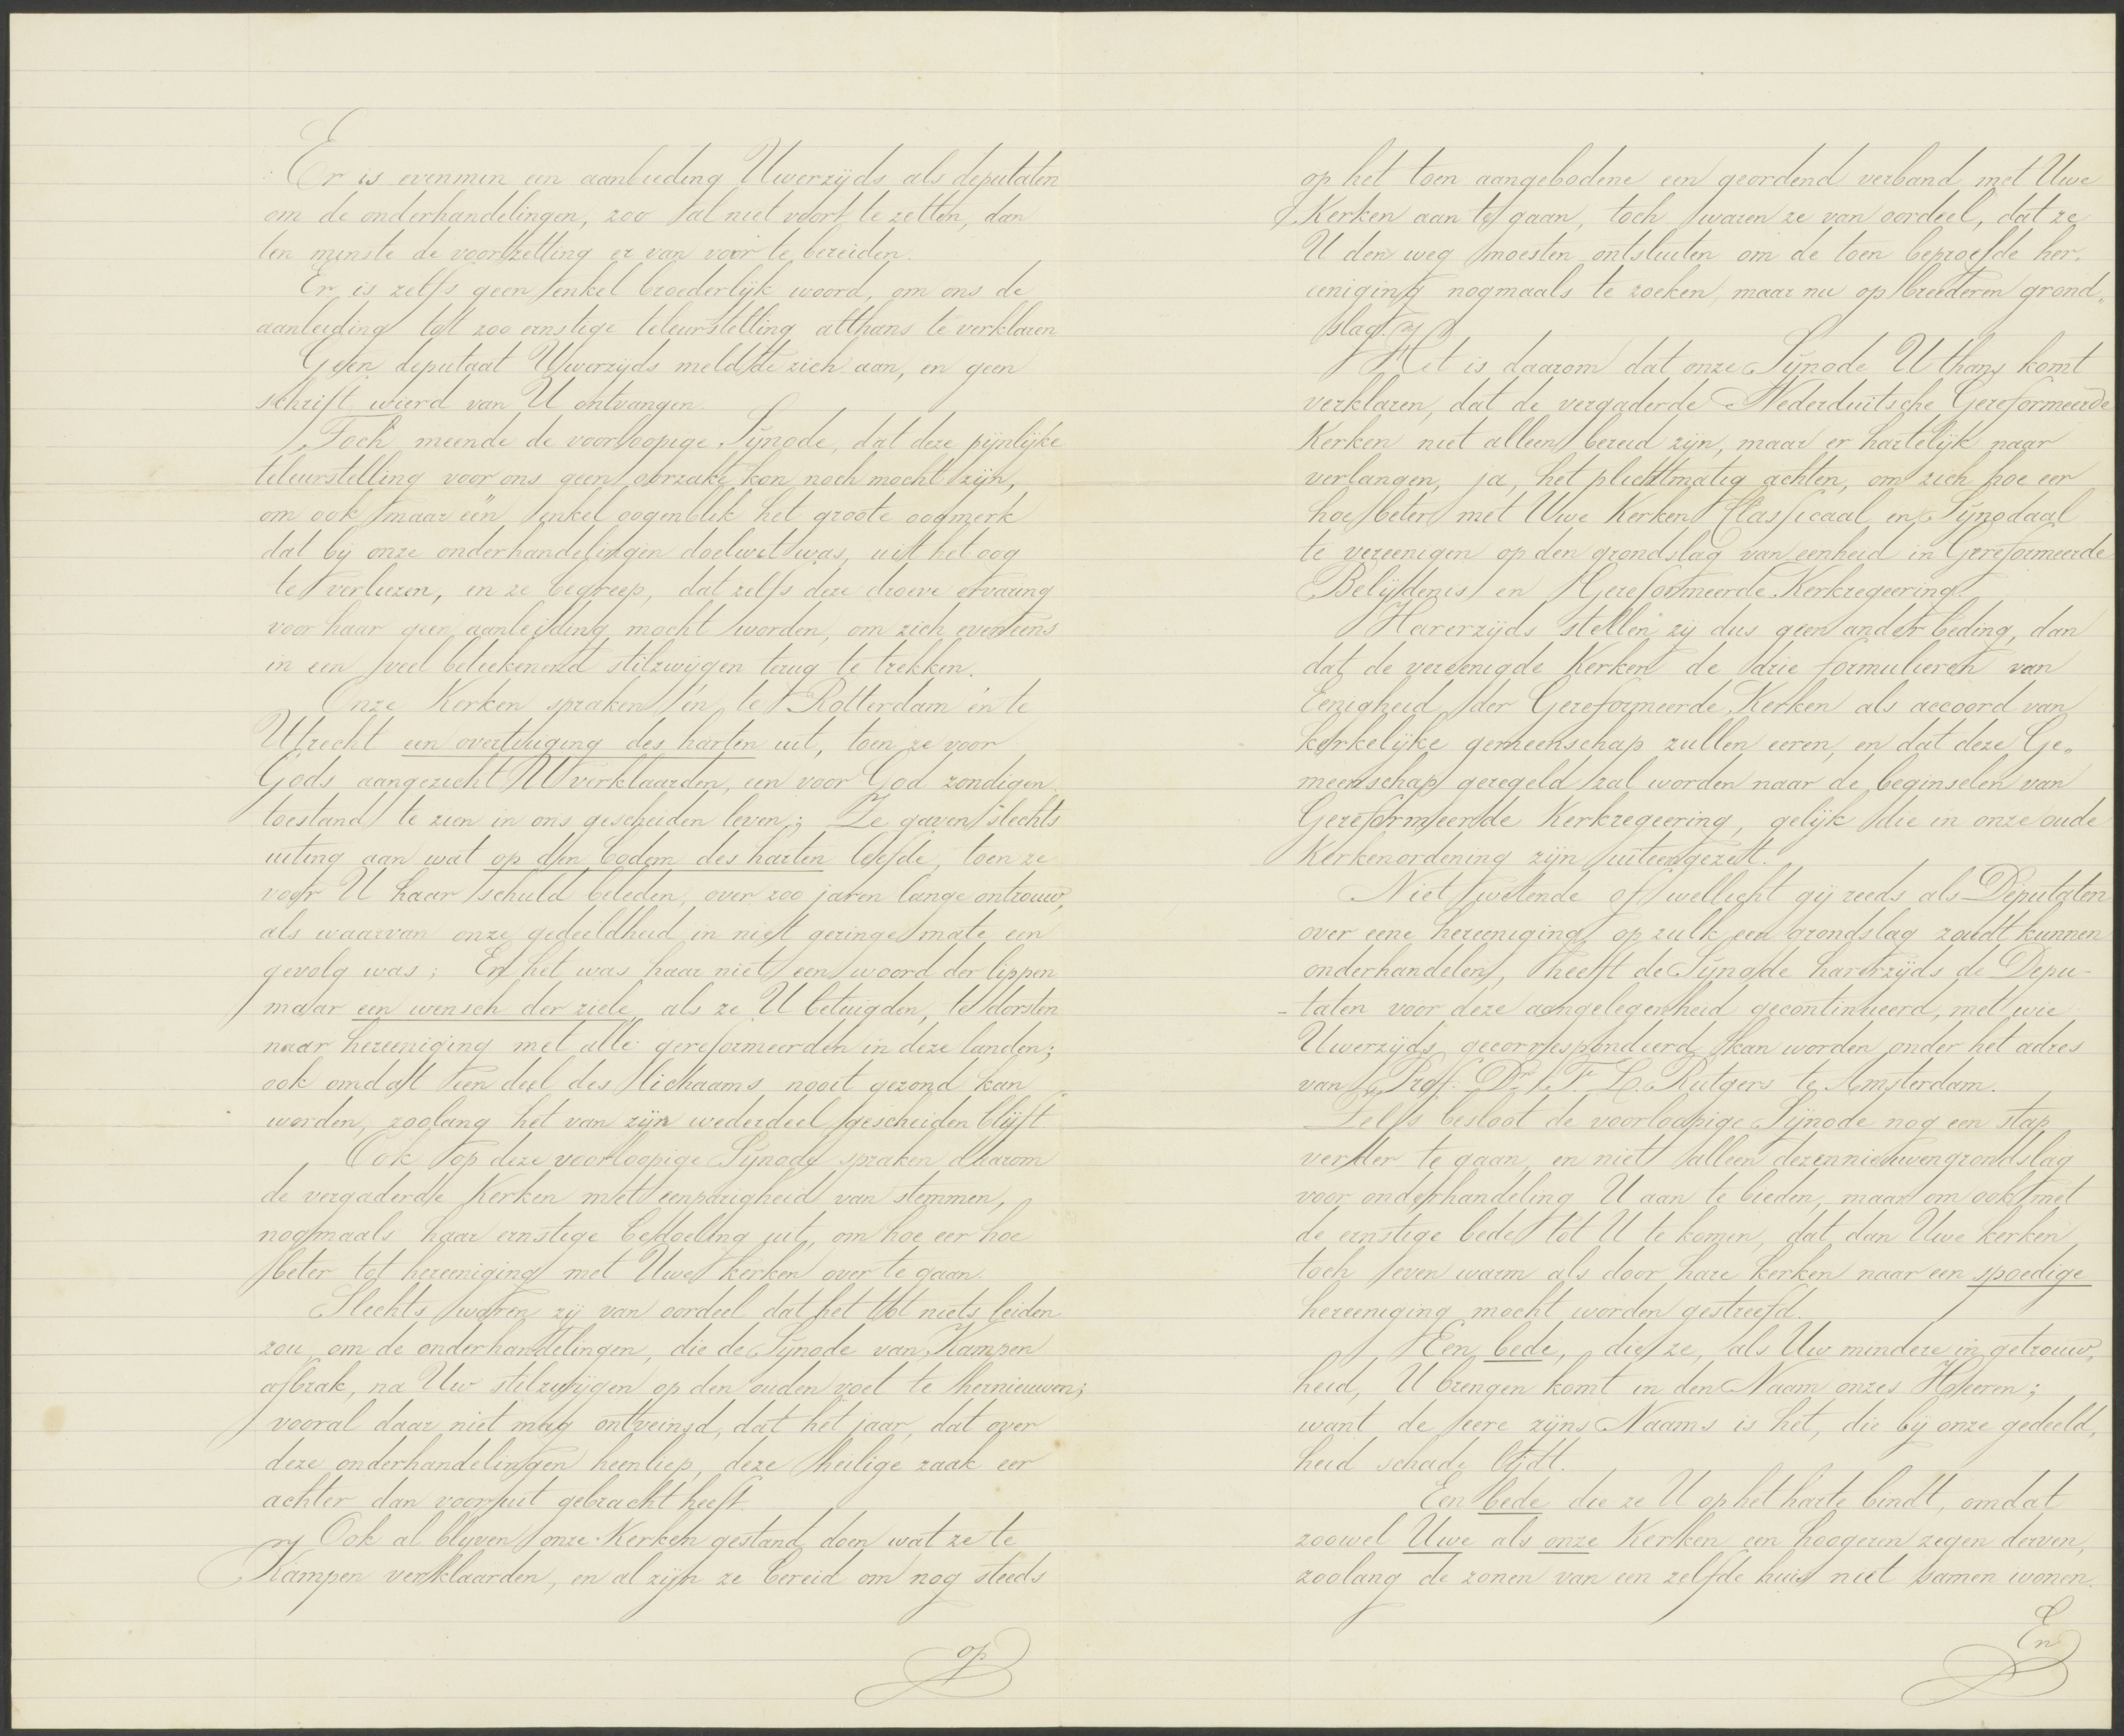 Er is evenmin een aanbieding Uwerzijds als deputaten
om de onderhandelingen, zoo al niet voort te zetten, dan
ten minste de voortzetting er van voor te bereiden.
Er is zelfs geen enkel broederlijk woord, om ons de
aanleiding tot zoo ernstige teleurstelling althans te verklaren
Geen deputaat Uwerzijds meldde zich aan, en geen
schrift wierd van U ontvangen.
Toch meende de voorloopige Synode, dat deze pijnlijke
teleurstelling voor ons geen oorzake kon noch mocht zijn,
om ook maar één enkel oogenblik het groote oogmerk
dat bij onze onderhandelingen doelwit was, uit het oog
te verliezen, en ze begreep, dat zelfs deze droeve ervaring
voor haar geen aanleiding mocht worden, om zich eveneens
in een veel beteekenend stilzwijgen terug te trekken.
Onze Kerken spraken én te Rotterdam én te
Utrecht een overtuiging des harten uit, toen ze voor
Gods aangezicht U verklaarden, een voor God zondigen
toestand te zien in ons gescheiden leven; Ze gaven slechts
uiting aan wat op den bodem des harten leefde, toen ze
voor U haar schuld beleden, over zoo jaren lange ontrouw,
als waarvan onze gedeeldheid in niet geringe mate een
gevolg was; En het was haar niet een woord der lippen
maar een wensch der ziele, als ze U betuigden, te dorsten
naar hereeniging met alle gereformeerden in deze landen;
ook omdat een deel des lichaams nooit gezond kan
worden, zoolang het van zijn wederdeel gescheiden blijft
Ook op deze voorloopige Synode spraken daarom
de vergaderde Kerken met eenparigheid van stemmen,
nogmaals haar ernstige bedoeling uit, om hoe eer hoe
beter tot hereeniging met Uwe kerken over te gaan.
Slechts waren zij van oordeel dat het tot niets leiden
zou, om de onderhandelingen, die de Synode van Kampen
afbrak, na Uw stilzwijgen op den ouden voet te hernieuwen;
vooral daar niet mag ontveinsd, dat het jaar, dat over
deze onderhandelingen heenliep, deze heilige zaak eer
achter dan vooruit gebracht heeft.
Ook al blijven onze Kerken gestand doen wat ze te
Kampen verklaarden, en al zijn ze bereid om nog steeds
op
op het toen aangebodene een geordend verband met Uwe
Kerken aan te gaan, toch waren ze van oordeel, dat ze
U den weg moesten ontsluiten om de toen beproefde her-
eeniging nogmaals te zoeken, maar nu op breederen grond-
slag.
Het is daarom dat onze Synode U thans komt
verklaren, dat de vergaderde Nederduitsche Gereformeerde
Kerken niet alleen bereid zijn, maar er hartelijk naar
verlangen, ja, het plichtmatig achten, om zich hoe eer
hoe beter met Uwe Kerken Classicaal en Synodaal
te vereenigen op den grondslag van eenheid in Gereformeerde
Belijdenis en Gereformeerde Kerkregeering.
Harerzijds stellen zij dus geen ander beding, dan
dat de vereenigde Kerken de drie formulieren van
Eenigheid der Gereformeerde Kerken als accoord van
kerkelijke gemeenschap zullen eeren, en dat deze Ge-
meenschap geregeld zal worden naar de beginselen van
Gereformeerde Kerkregeering, gelijk die in onze oude
Kerkenordening zijn uiteengezet.
Niet wetende of wellicht gij reeds als Deputaten
over eene hereeniging op zulk een grondslag zoudt kunnen
onderhandelen, heeft de Synode harerzijds de Depu-
-taten voor deze aangelegenheid gecontinueerd, met wie
Uwerzijds gecorrespondeerd kan worden onder het adres
van Prof. Dr. F. L. Rutgers te Amsterdam.
Zelfs besloot de voorloopige Synode nog een stap
verder te gaan en niet alleen dezen nieuwen grondslag
voor onderhandeling U aan te bieden, maar om ook met
de ernstige bede tot U te komen, dat dan Uwe kerken
toch even warm als door hare kerken naar een spoedige
hereeniging mocht worden gestreefd.
Een bede, die ze, als Uw mindere in getrouw-
heid, U brengen komt in den Naam onzes Heeren;
want de eere zijns Naams is het, die bij onze gedeeld-
heid schade lijdt.
Een bede die ze U op het harte bindt, omdat
zoowel Uwe als onze Kerken een hoogeren zegen derven,
zoolang de zonen van een zelfde huis niet samen wonen.
En